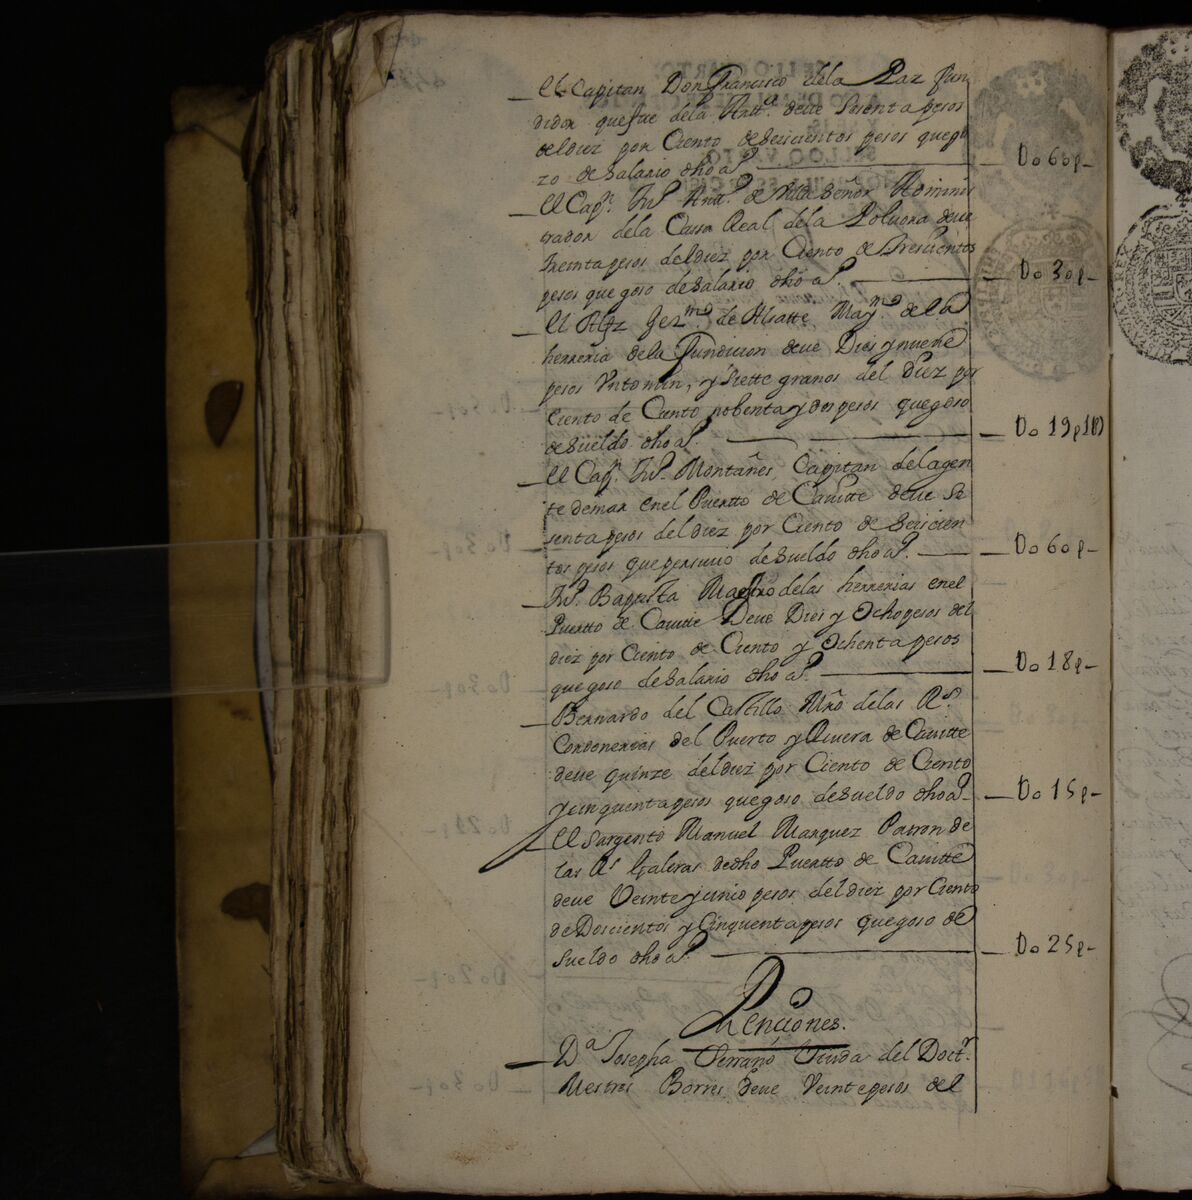 El Capitan Don Francisco dela Paz fun
didor que fue dela Artt.ª deue Sesenta pesos
del diez por Ciento de Seiscientos pesos que go
zo de Salario dho a.º — Do 60p—
El Cap.n Ju.º Ant.º de Villaseñor Adminis
trador dela Cassa Real dela Poluora deue
treinta pesos del diez por Ciento de trescientos
pesos que goso de Salario dho a.º — Do 30p—
El Alfz Ger.mo de Alsatte May.mo de la
herreria dela Fundicion deue Dies y nueue
pesos Un tomin, y Siette granos del Diez por
Ciento de Ciento nobenta y dos pesos que goso
de Sueldo dho a.º — Do 19p1
El Cap.n Ju.º Montañes, Capitan dela gen
te de mar en el Puertto de Cauitte deue Se
senta pesos del diez por Ciento de Seiscien
tos pesos que perciuio de Sueldo dho a.º — Do 60p—
Ju.º Baptista Maestro delas herrerias en el
Puertto de Cauitte Deue Dies y Ocho pesos del
diez por Ciento de Ciento y Ochenta pesos
que goso de Salario dho a.º — Do 18p—
Bernardo del Castillo Mro delas R.s
Cordonerias del Puerto y Riuera de Cauitte
deue quinze del diez por Ciento de Ciento
y cinquenta pesos que goso de Sueldo dho a.º — Do 15p—
El Sargento Manuel Marquez Patron de
las R.s Galeras de dho Puertto de Cauitte
deue Veinte y cinco pesos del diez por Ciento
de Doscientos y Cinquenta pesos que goso de
Sueldo dho a.º — Do 25p—
Penciones.
D.ª Josepha Serrano Viuda del Doct.r
Borres deue Veinte pesos del